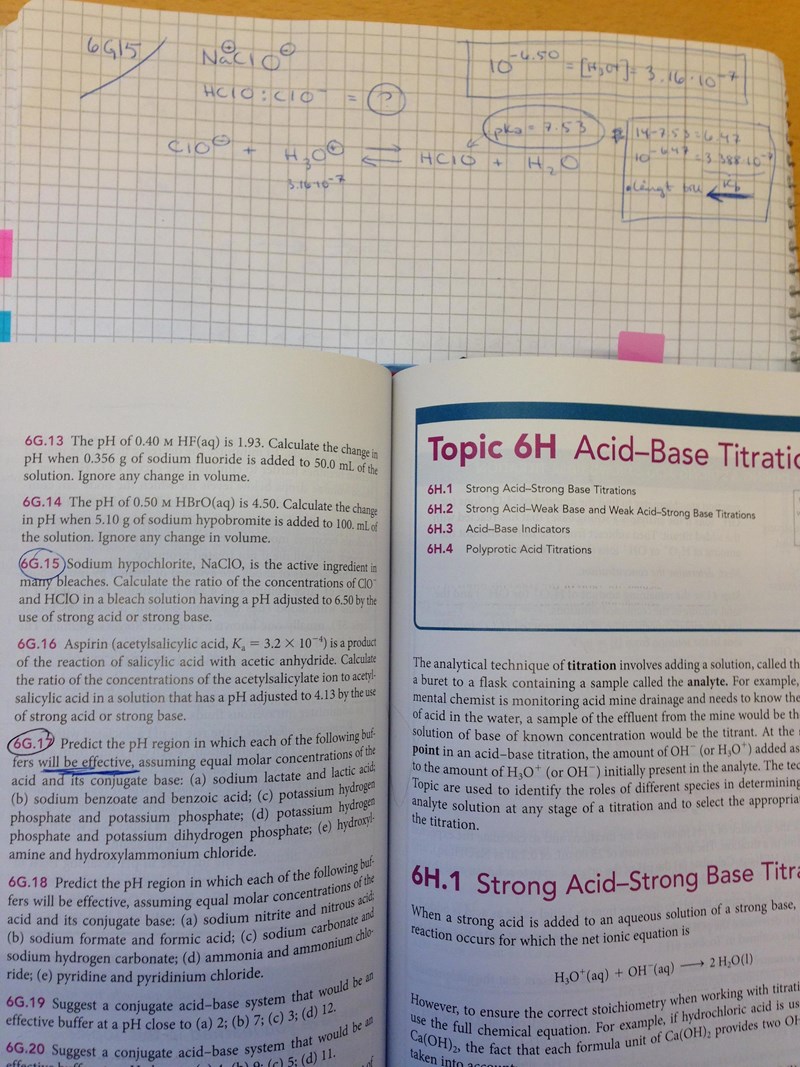 6G15
Na⊕ClO⊖
HClO : ClO⁻ = ?
10^-6.50 = [H3O+] = 3.16·10^-7
pKa = 7.53
14-7.53=6.47
10^-6.47 = 3.388·10^-7
Kb
ClO⊖ + H3O⊕ ⇌ HClO + H2O
3.16·10^-7
6G.13 The pH of 0.40 M HF(aq) is 1.93. Calculate the change in
pH when 0.356 g of sodium fluoride is added to 50.0 mL of the
solution. Ignore any change in volume.
6G.14 The pH of 0.50 M HBrO(aq) is 4.50. Calculate the change
in pH when 5.10 g of sodium hypobromite is added to 100. mL of
the solution. Ignore any change in volume.
6G.15 Sodium hypochlorite, NaClO, is the active ingredient in
many bleaches. Calculate the ratio of the concentrations of ClO⁻
and HClO in a bleach solution having a pH adjusted to 6.50 by the
use of strong acid or strong base.
6G.16 Aspirin (acetylsalicylic acid, Ka = 3.2 × 10⁻⁴) is a product
of the reaction of salicylic acid with acetic anhydride. Calculate
the ratio of the concentrations of the acetylsalicylate ion to acetyl-
salicylic acid in a solution that has a pH adjusted to 4.13 by the use
of strong acid or strong base.
6G.17 Predict the pH region in which each of the following buf-
fers will be effective, assuming equal molar concentrations of the
acid and its conjugate base: (a) sodium lactate and lactic acid;
(b) sodium benzoate and benzoic acid; (c) potassium hydrogen
phosphate and potassium phosphate; (d) potassium hydrogen
phosphate and potassium dihydrogen phosphate; (e) hydroxyl-
amine and hydroxylammonium chloride.
6G.18 Predict the pH region in which each of the following buf-
fers will be effective, assuming equal molar concentrations of the
acid and its conjugate base: (a) sodium nitrite and nitrous acid;
(b) sodium formate and formic acid; (c) sodium carbonate and
sodium hydrogen carbonate; (d) ammonia and ammonium chlo-
ride; (e) pyridine and pyridinium chloride.
6G.19 Suggest a conjugate acid–base system that would be an
effective buffer at a pH close to (a) 2; (b) 7; (c) 3; (d) 12.
6G.20 Suggest a conjugate acid–base system that would be an
(c) 5; (d) 11.
Topic 6H Acid–Base Titratio
6H.1 Strong Acid–Strong Base Titrations
6H.2 Strong Acid–Weak Base and Weak Acid–Strong Base Titrations
6H.3 Acid–Base Indicators
6H.4 Polyprotic Acid Titrations
The analytical technique of titration involves adding a solution, called th
a buret to a flask containing a sample called the analyte. For example,
mental chemist is monitoring acid mine drainage and needs to know the
of acid in the water, a sample of the effluent from the mine would be th
solution of base of known concentration would be the titrant. At the
point in an acid–base titration, the amount of OH⁻ (or H3O⁺) added as
to the amount of H3O⁺ (or OH⁻) initially present in the analyte. The tec
Topic are used to identify the roles of different species in determining
analyte solution at any stage of a titration and to select the appropria
the titration.
6H.1 Strong Acid–Strong Base Titra
When a strong acid is added to an aqueous solution of a strong base,
reaction occurs for which the net ionic equation is
H3O⁺(aq) + OH⁻(aq) ⟶ 2 H2O(l)
However, to ensure the correct stoichiometry when working with titrati
use the full chemical equation. For example, if hydrochloric acid is us
Ca(OH)2, the fact that each formula unit of Ca(OH)2 provides two OH
taken into account